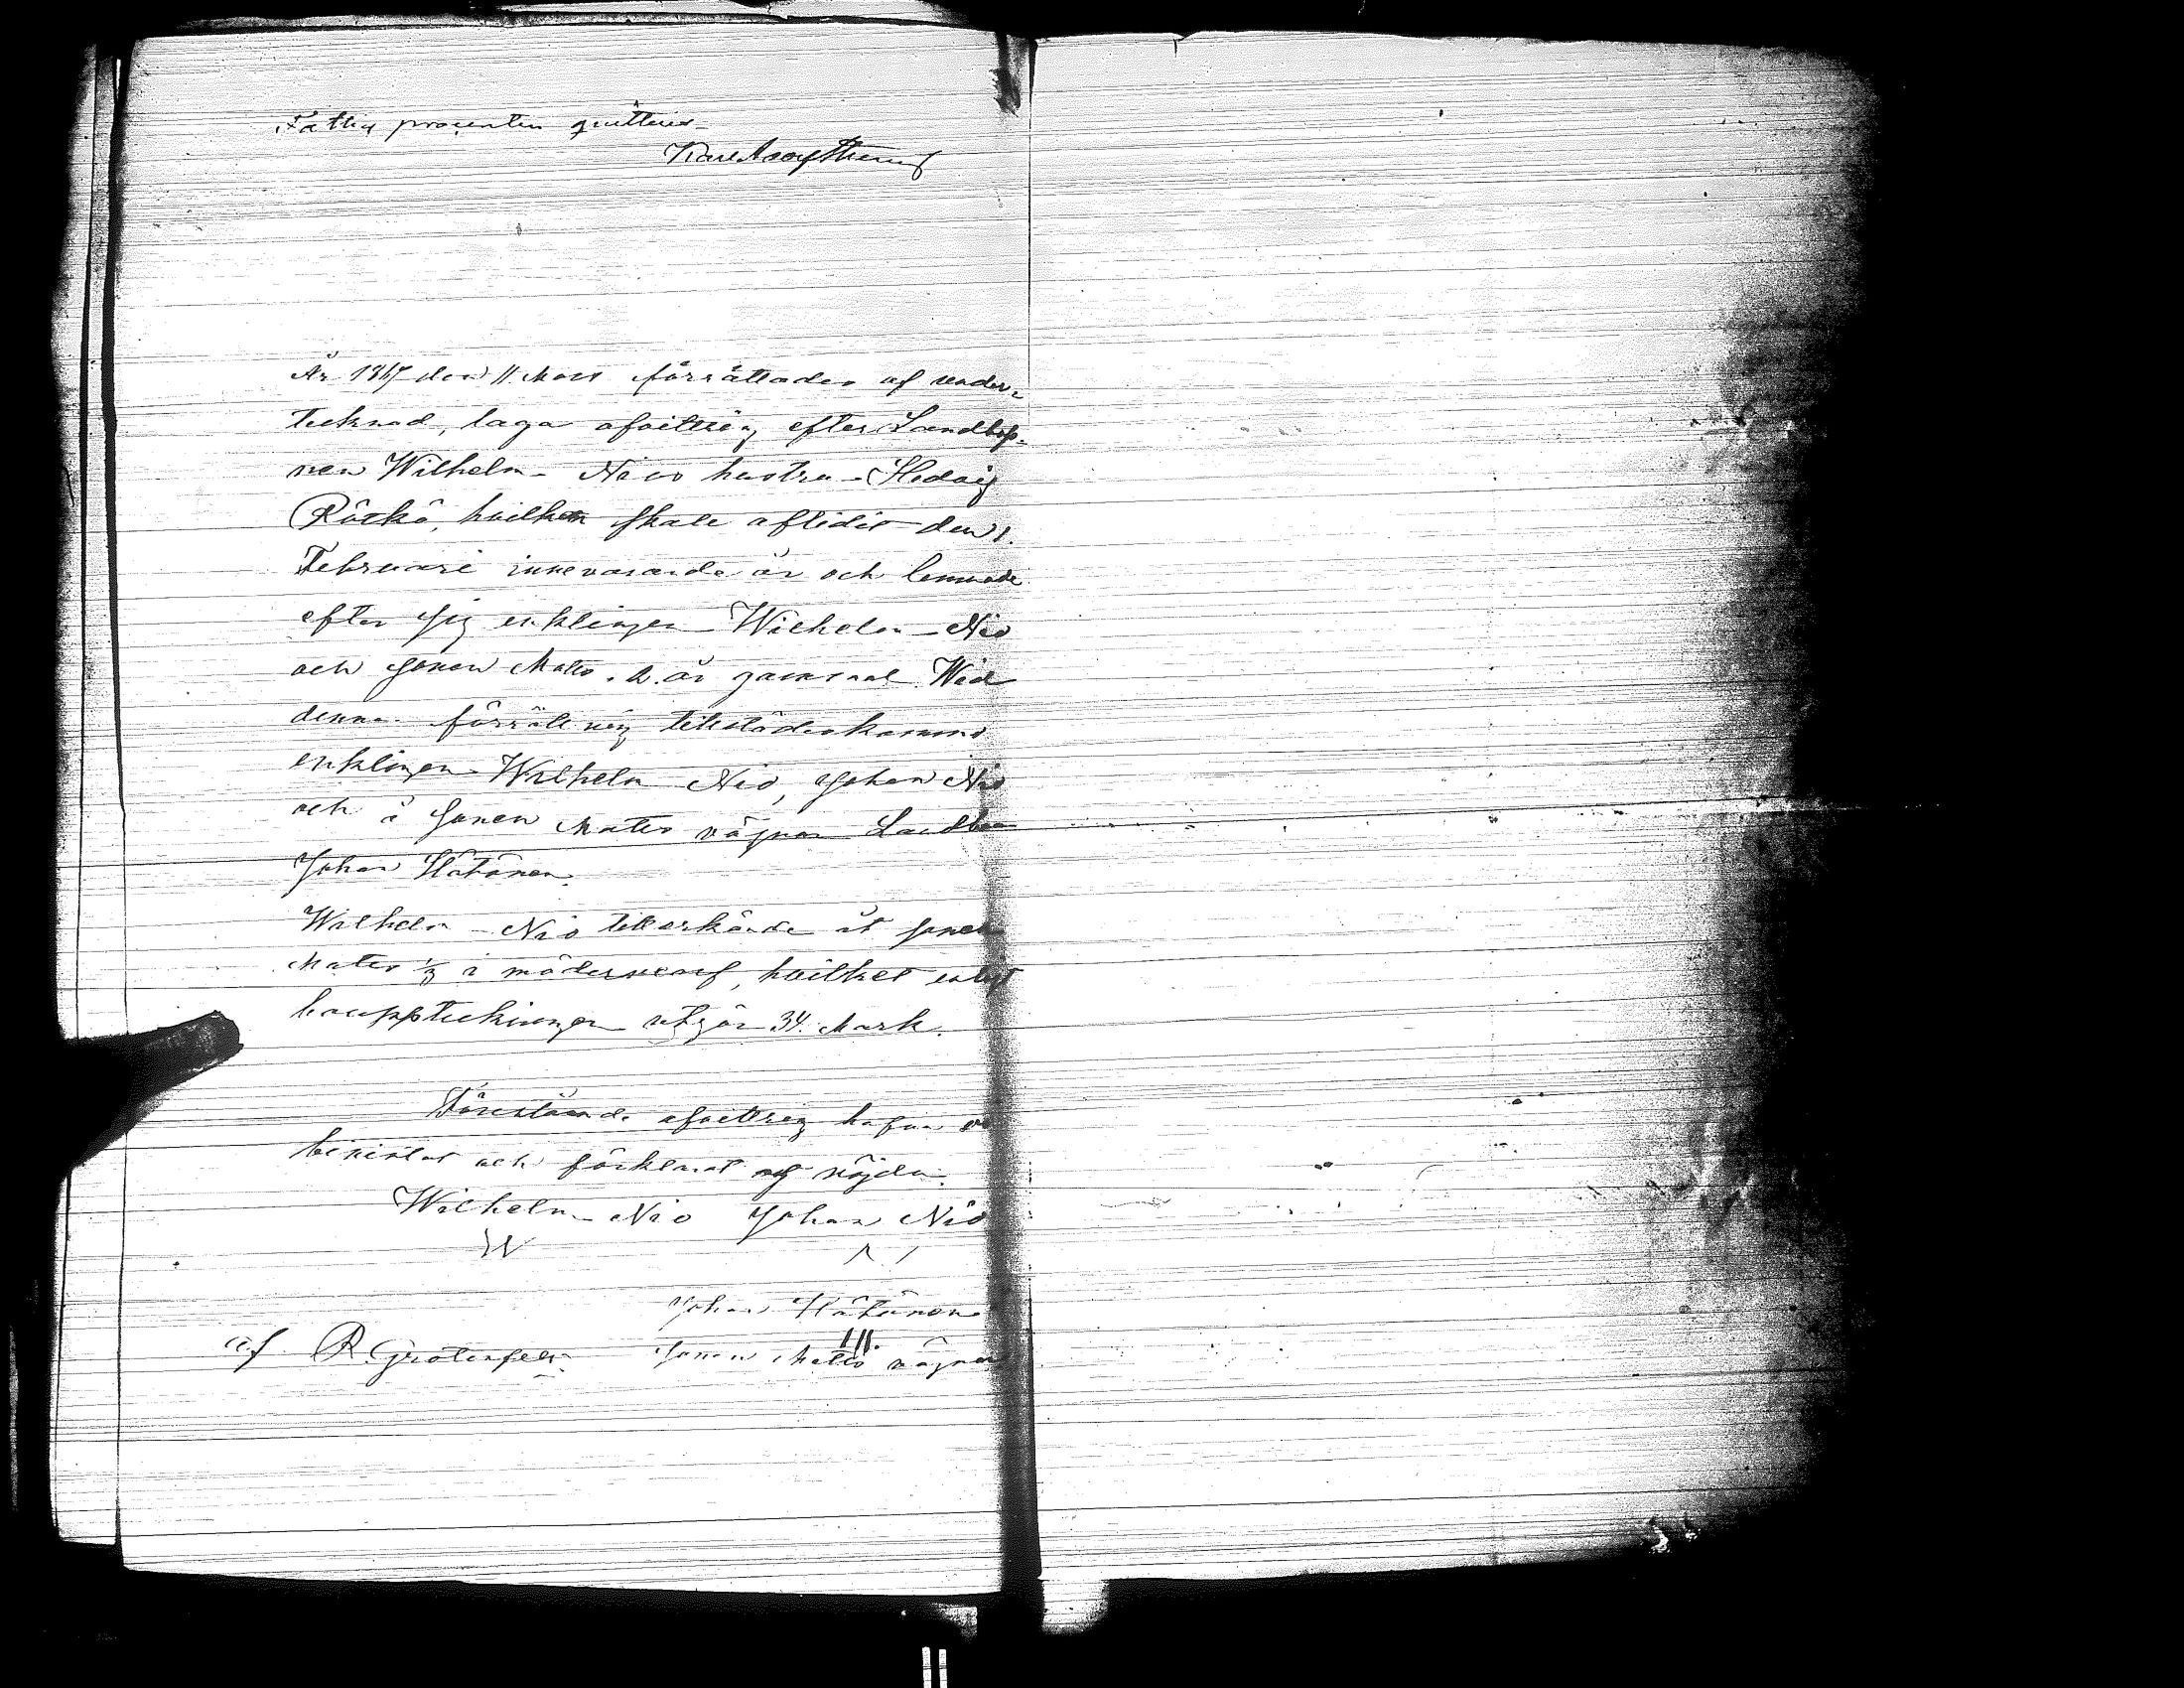 Fattig procenten qvitteras
År 1867 den 11 Mars förrättades af under=
tecknad, laga afvittring efter Landtbo=
nen Wilhelm Niios hustru Hedvig
Rötkö, hvilken skall aflidit den 1.
Februari innevarande år och lemnade
efter sig enklingen Wilhelm Niö
och sonen Matts. 2. år gammal. Wid
denna förrättning tillstädeskommo
enklingen Wilhelm Niö, Johan Niö
och å sonen Matts vägnar Landtbon
Johan Hätönen.
Wilhelm Niö tillerkände åt sonen
Matts 1/3 i mödernearf, hvilket enligt
bouppteckningen utgör 34. Mark.
Förestående afvittring hafva vi
bevistat och förklarat oss nöjda.
Wilhelm Niö Johan Niö
W
Johan Hätönen
III.
af R. Grotenfelt. sonen Matts vägnar